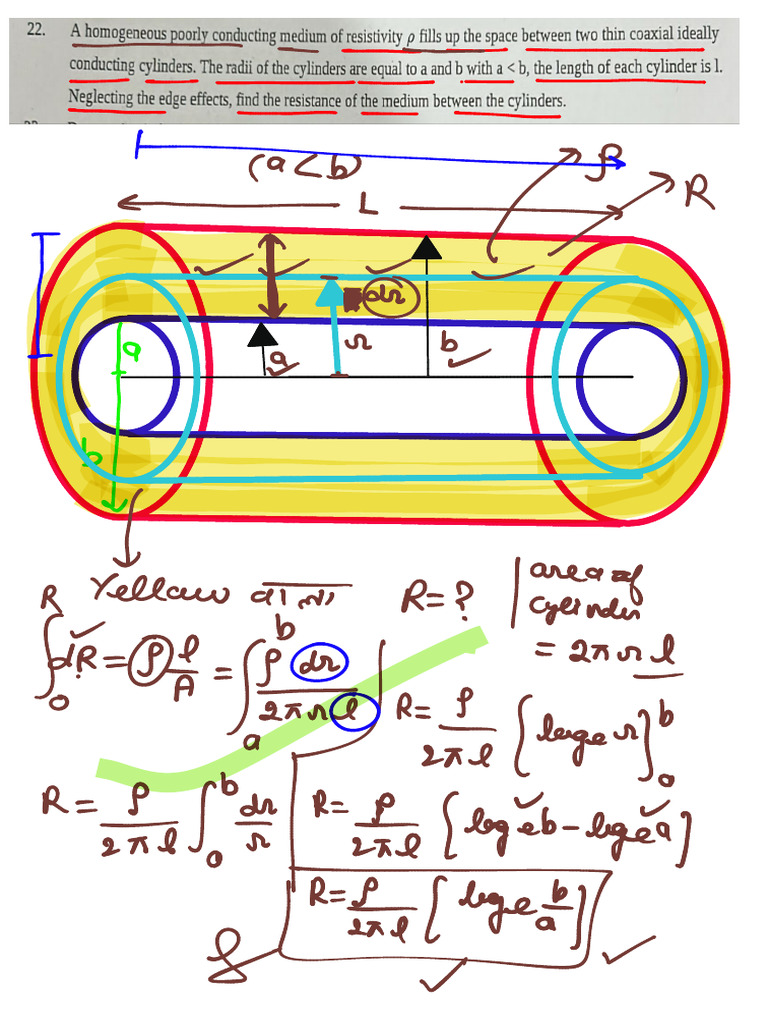 22. A homogeneous poorly conducting medium of resistivity ρ fills up the space between two thin coaxial ideally
conducting cylinders. The radii of the cylinders are equal to a and b with a < b, the length of each cylinder is l.
Neglecting the edge effects, find the resistance of the medium between the cylinders.
(a < b)
ρ
L
R
dr
a
r
b
a
b
Yellow वाला
R = ?
area of
cylinder
= 2πrl
∫₀ᴿ dR = ρ l/A = ∫ₐᵇ ρ dr / 2πrl
R = ρ/2πl [loge r]₀ᵇ
R = ρ/2πl ∫₀ᵇ dr/r
R = ρ/2πl [loge b - loge a]
R = ρ/2πl [loge b/a]